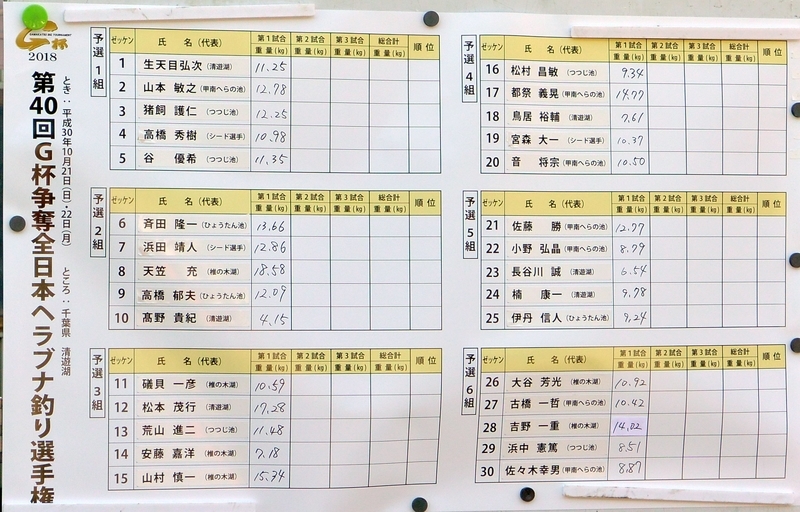 G杯
2018
第40回G杯争奪全日本ヘラブナ釣り選手権
とき：平成30年10月21日(日)・22日(月)　ところ：千葉県　清遊湖
予選1組
ゼッケン 氏 名（代表） 第1試合 第2試合 第3試合 総合計 順 位
重量(kg) 重量(kg) 重量(kg) 重量(kg)
1 生天目弘次（清遊湖） 11.25
2 山本 敏之（甲南へらの池） 12.78
3 猪飼 護仁（つつじ池） 12.25
4 高橋 秀樹（シード選手） 10.98
5 谷 優希（つつじ池） 11.35
予選2組
ゼッケン 氏 名（代表） 第1試合 第2試合 第3試合 総合計 順 位
重量(kg) 重量(kg) 重量(kg) 重量(kg)
6 斉田 隆一（ひょうたん池） 13.66
7 浜田 靖人（シード選手） 12.86
8 天笠 充（椎の木湖） 18.58
9 高橋 郁夫（ひょうたん池） 12.09
10 髙野 貴紀（清遊湖） 4.15
予選3組
ゼッケン 氏 名（代表） 第1試合 第2試合 第3試合 総合計 順 位
重量(kg) 重量(kg) 重量(kg) 重量(kg)
11 礒貝 一彦（椎の木湖） 10.59
12 松本 茂行（清遊湖） 17.28
13 荒山 進二（つつじ池） 11.48
14 安藤 嘉洋（椎の木湖） 7.18
15 山村 慎一（椎の木湖） 15.74
予選4組
ゼッケン 氏 名（代表） 第1試合 第2試合 第3試合 総合計 順 位
重量(kg) 重量(kg) 重量(kg) 重量(kg)
16 松村 昌敏（つつじ池） 9.34
17 都祭 義晃（甲南へらの池） 14.77
18 鳥居 裕輔（清遊湖） 7.61
19 宮森 大一（シード選手） 10.37
20 音 将宗（甲南へらの池） 10.50
予選5組
ゼッケン 氏 名（代表） 第1試合 第2試合 第3試合 総合計 順 位
重量(kg) 重量(kg) 重量(kg) 重量(kg)
21 佐藤 勝（甲南へらの池） 12.77
22 小野 弘晶（甲南へらの池） 8.79
23 長谷川 誠（清遊湖） 6.54
24 楠 康一（清遊湖） 9.78
25 伊丹 信人（ひょうたん池） 9.24
予選6組
ゼッケン 氏 名（代表） 第1試合 第2試合 第3試合 総合計 順 位
重量(kg) 重量(kg) 重量(kg) 重量(kg)
26 大谷 芳光（椎の木湖） 10.92
27 古橋 一哲（甲南へらの池） 10.42
28 吉野 一重（椎の木湖） 14.02
29 浜中 憲篤（つつじ池） 8.51
30 佐々木幸男（甲南へらの池） 8.87